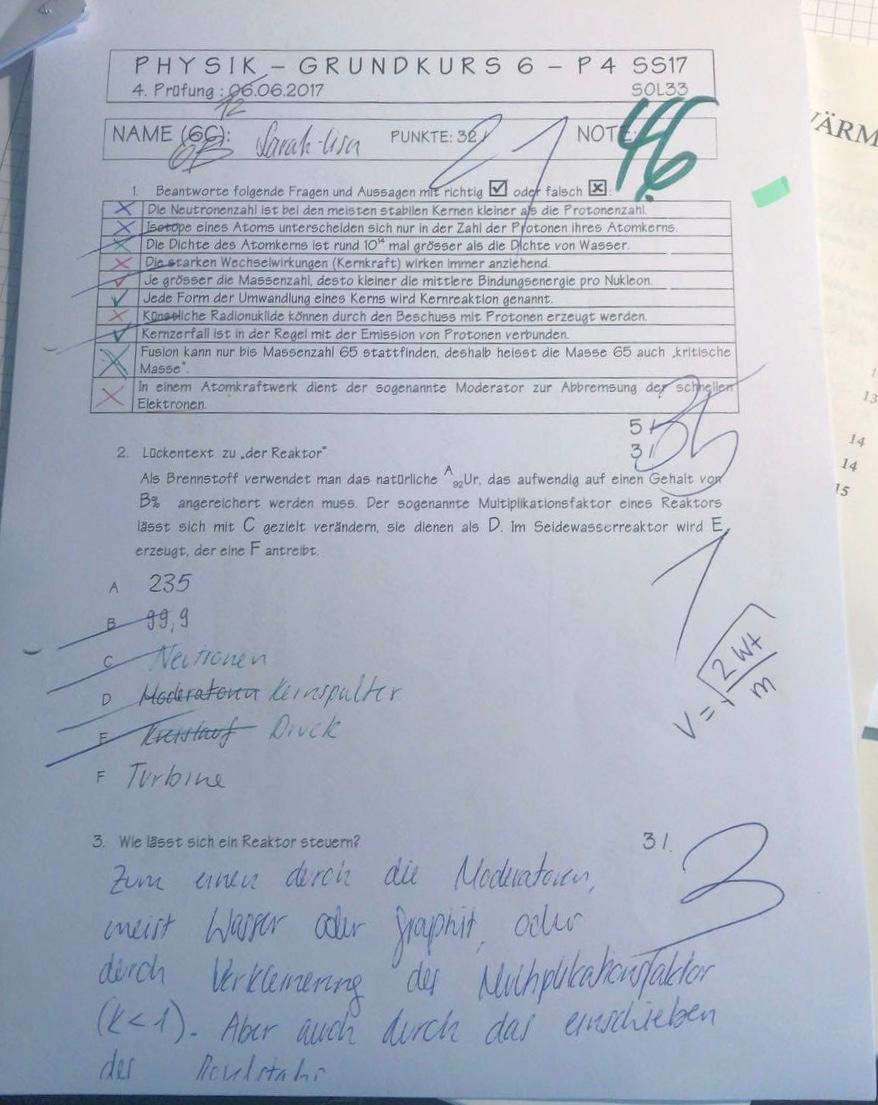 PHYSIK – GRUNDKURS 6 – P4 SS17
4. Prüfung : 06.06.2017 SOL33
12
NAME (6C): Sarah-Lisa PUNKTE: 32/ 21 NOTE: 4,6
6B
1. Beantworte folgende Fragen und Aussagen mit richtig ☑ oder falsch ☒:
Die Neutronenzahl ist bei den meisten stabilen Kernen kleiner als die Protonenzahl.
Isotope eines Atoms unterscheiden sich nur in der Zahl der Protonen ihres Atomkerns.
Die Dichte des Atomkerns ist rund 10¹⁴ mal grösser als die Dichte von Wasser.
Die starken Wechselwirkungen (Kernkraft) wirken immer anziehend.
Je grösser die Massenzahl, desto kleiner die mittlere Bindungsenergie pro Nukleon.
Jede Form der Umwandlung eines Kerns wird Kernreaktion genannt.
Künstliche Radionuklide können durch den Beschuss mit Protonen erzeugt werden.
Kernzerfall ist in der Regel mit der Emission von Protonen verbunden.
Fusion kann nur bis Massenzahl 65 stattfinden, deshalb heisst die Masse 65 auch „kritische
Masse“.
In einem Atomkraftwerk dient der sogenannte Moderator zur Abbremsung der schnellen
Elektronen.
5 / 3,5
2. Lückentext zu „der Reaktor“ 3 /
Als Brennstoff verwendet man das natürliche ᴬ₉₂Ur, das aufwendig auf einen Gehalt von
B% angereichert werden muss. Der sogenannte Multiplikationsfaktor eines Reaktors
lässt sich mit C gezielt verändern, sie dienen als D. Im Seidewasserreaktor wird E
erzeugt, der eine F antreibt.
1
A 235
B 99,9
C Neutronen
D Moderatoren Kernspalter
E Kreislauf Druck
F Turbine
V = √2Wt/m
3. Wie lässt sich ein Reaktor steuern? 3 /. 3
Zum einen durch die Moderatoren,
meist Wasser oder Graphit, oder
durch Verkleinerung des Multiplikationsfaktor
(k < 1). Aber auch durch das einschieben
der
WÄRM
13
14
14
15